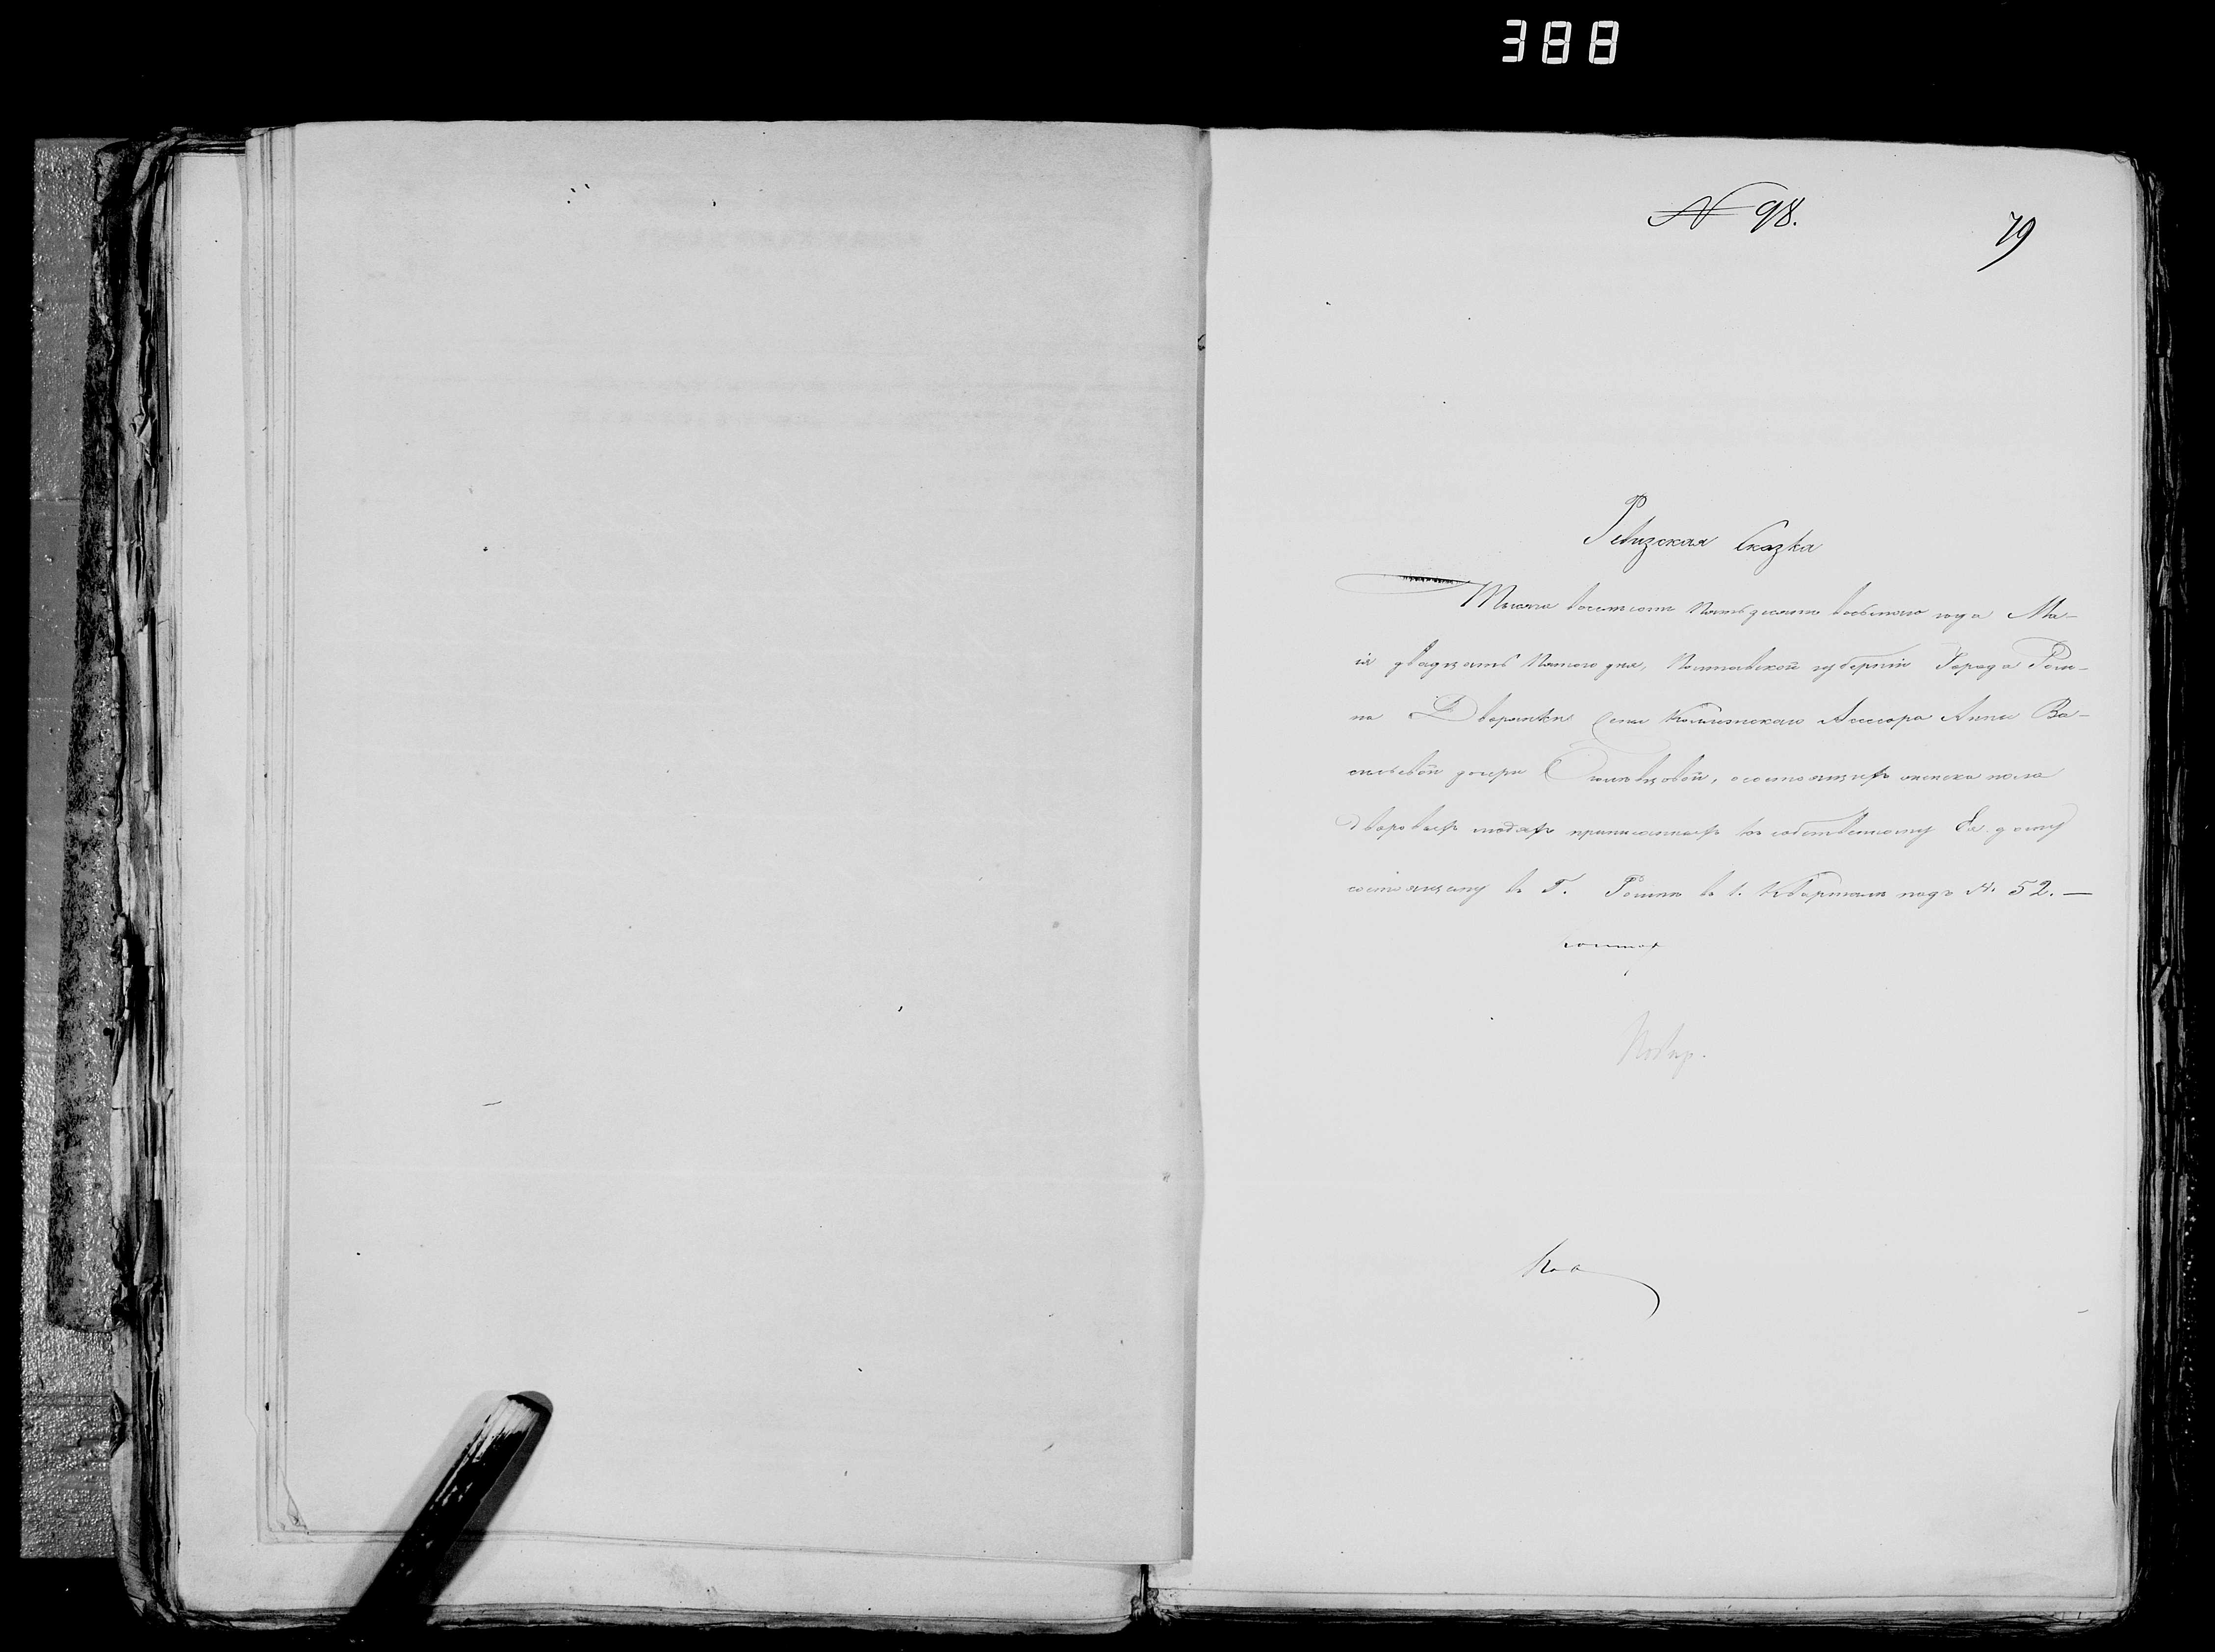 388
№ 98.
79
Ревизская Сказка
Тысяча восемсотъ пятьдесятъ восьмого года Ма-
ія двадцать пятого дня, Полтавской губерніи Города Ром-
на Дворянки жены Коллежскаго Ассесора Анны Ва-
сильевой дочери, о состоящихъ женска пола
дворовыхъ людяхъ приписанныхъ къ собственному Ея дому
состоящему въ Г. Ромнѣ въ 1. Кварталѣ подъ № 52. —